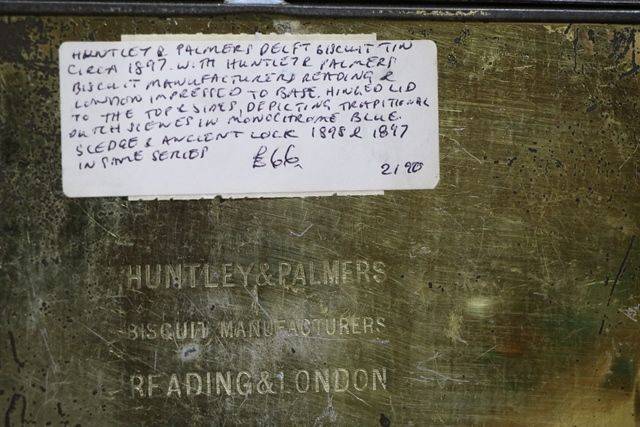 HUNTLEY & PALMERS DELFT BISCUIT TIN
CIRCA 1897. WITH HUNTLEY & PALMERS
BISCUIT MANUFACTURERS READING &
LONDON IMPRESSED TO BASE. HINGED LID
TO THE TOP & SIDES, DEPICTING TRADITIONAL
DUTCH SCENES IN MONOCHROME BLUE.
SLEDGE & ANCIENT LOCK 1898 & 1897
IN SAME SERIES
£66
2190
HUNTLEY & PALMERS
BISCUIT MANUFACTURERS
READING & LONDON